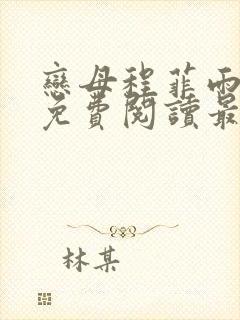 戀母程菲雨
免費閱讀最
林某